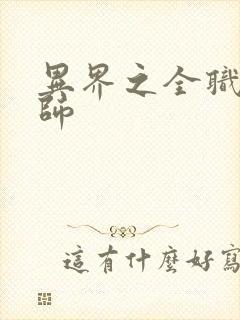 異界之全職
師
這有什麼好寫